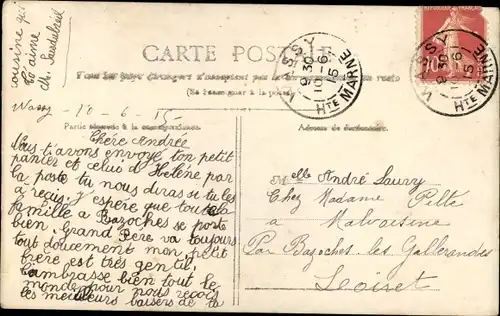 cousine qui
t'aime
ch.
CARTE POSTALE
Tous les pays étrangers n'acceptent pas la
(Se renseigner à la poste)
WASSY
9 30
10-6
15
Hte MARNE
WASSY
9 30
10-6
15
Hte MARNE
10
Wassy - 10 - 6 - 15
Partie réservée à la correspondance.
Adresse du destinataire.
Chère Andrée
Nous t'avons envoyé ton petit
panier et celui d'Helène par
la poste tu nous diras si tu les
a reçis. J'espère que toute la
famille a Bazoches se porte
bien. Grand Père va toujours
tout doucement mon petit
frère est très gentil.
Embrasse bien tout le
monde pour nous reçois
les meilleurs baisers de ta
Melle André Saury
Chez Madame Pilte
à Malvoisine
Par Bazoches les Gallerandes
Loiret